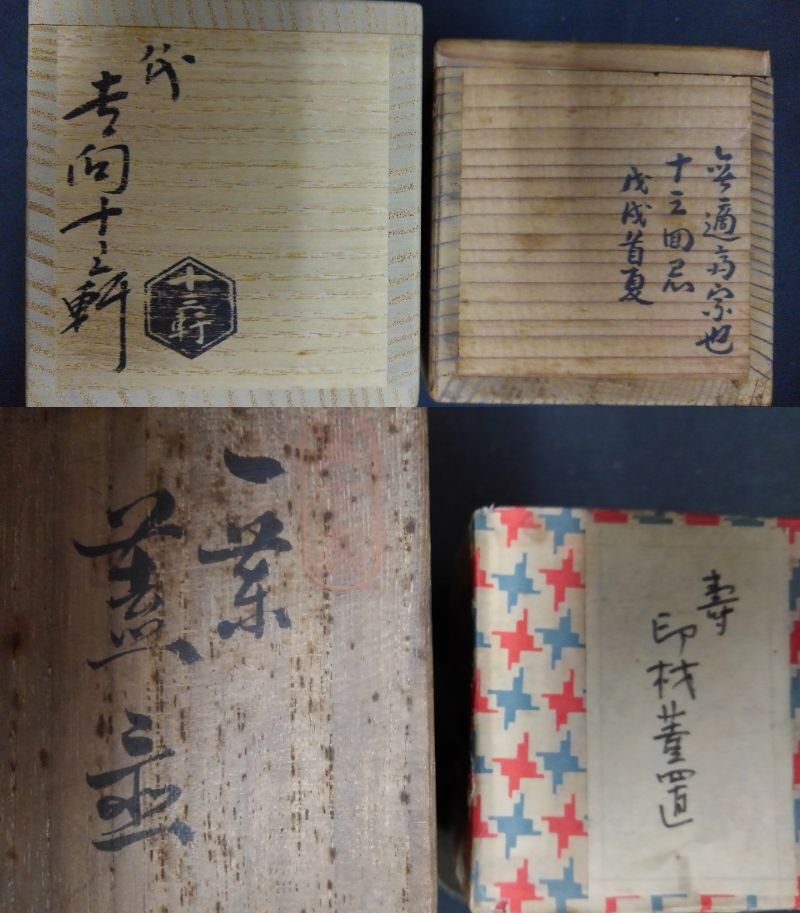 代
吉向十三軒
十三軒
無適斎宗也
十三回忌
戊戌首夏
一葉
蓋置
壽
印材蓋置